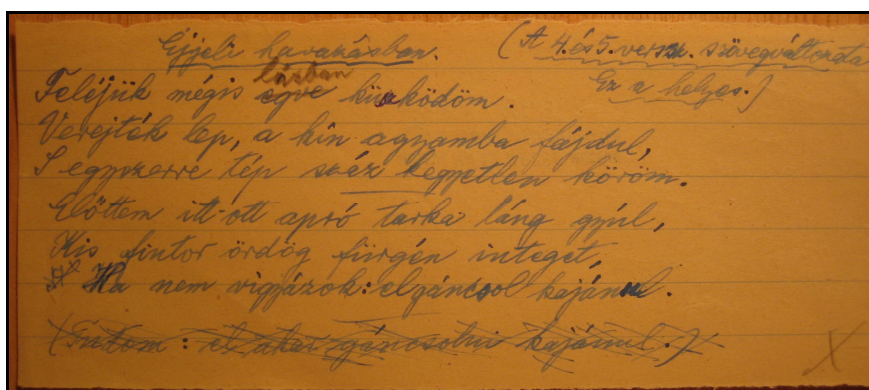 Éjjeli havazásban. (A 4. és 5. versz. szövegváltozata
Ez a helyes.)
lázban
Feléjük mégis égve küszködöm.
Verejték lep, a kín agyamba fájdul,
S egyszerre tép száz kegyetlen köröm.
Előttem itt-ott apró tarka láng gyúl,
Kis fintor ördög fürgén integet,
Ha nem vigyázok: elgáncsol kajánul.
(Tudom: el akar gáncsolni kajánul.)